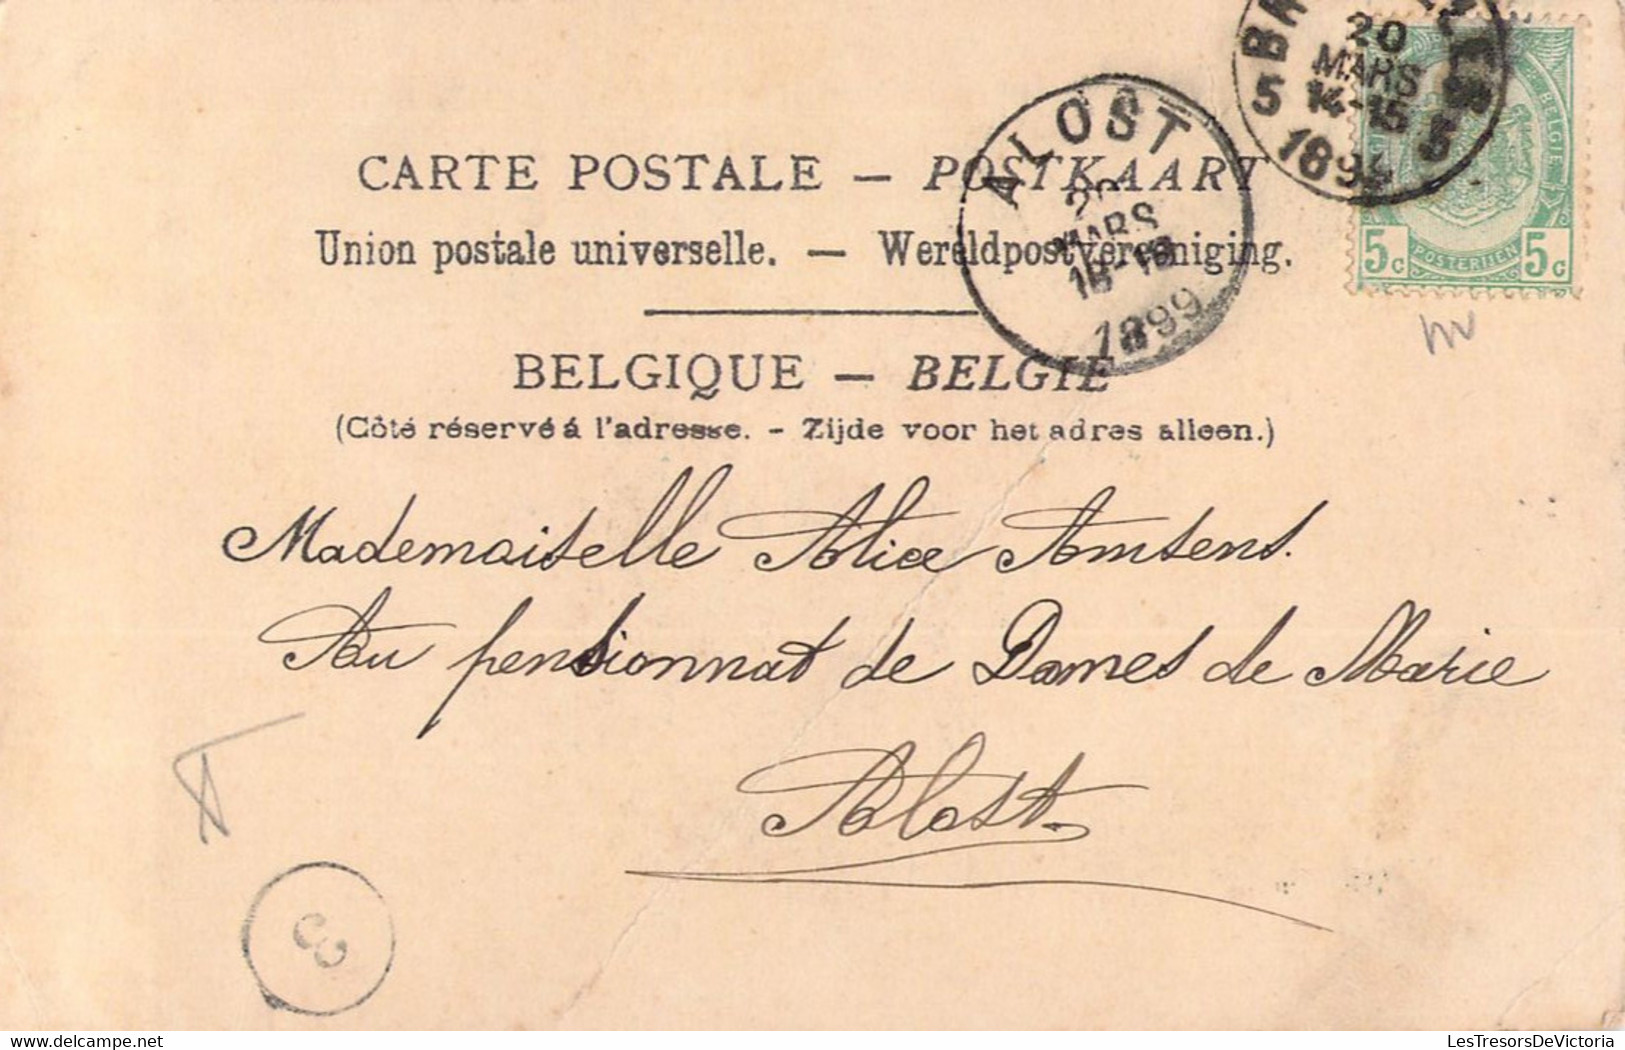 CARTE POSTALE — POSTKAART
Union postale universelle. — Wereldpostvereeniging.
BELGIQUE — BELGIE
(Côté réservé á l'adresse. - Zijde voor het adres alleen.)
Mademoiselle Alice Amsens.
Au pensionnat de Dames de Marie
Alost
ALOST
20
MARS
1899
20
MARS
14-15
5 5
189
BELGIE
5c POSTERIJEN 5c
3
LesTresorsDeVictoria.com
www.delcampe.net